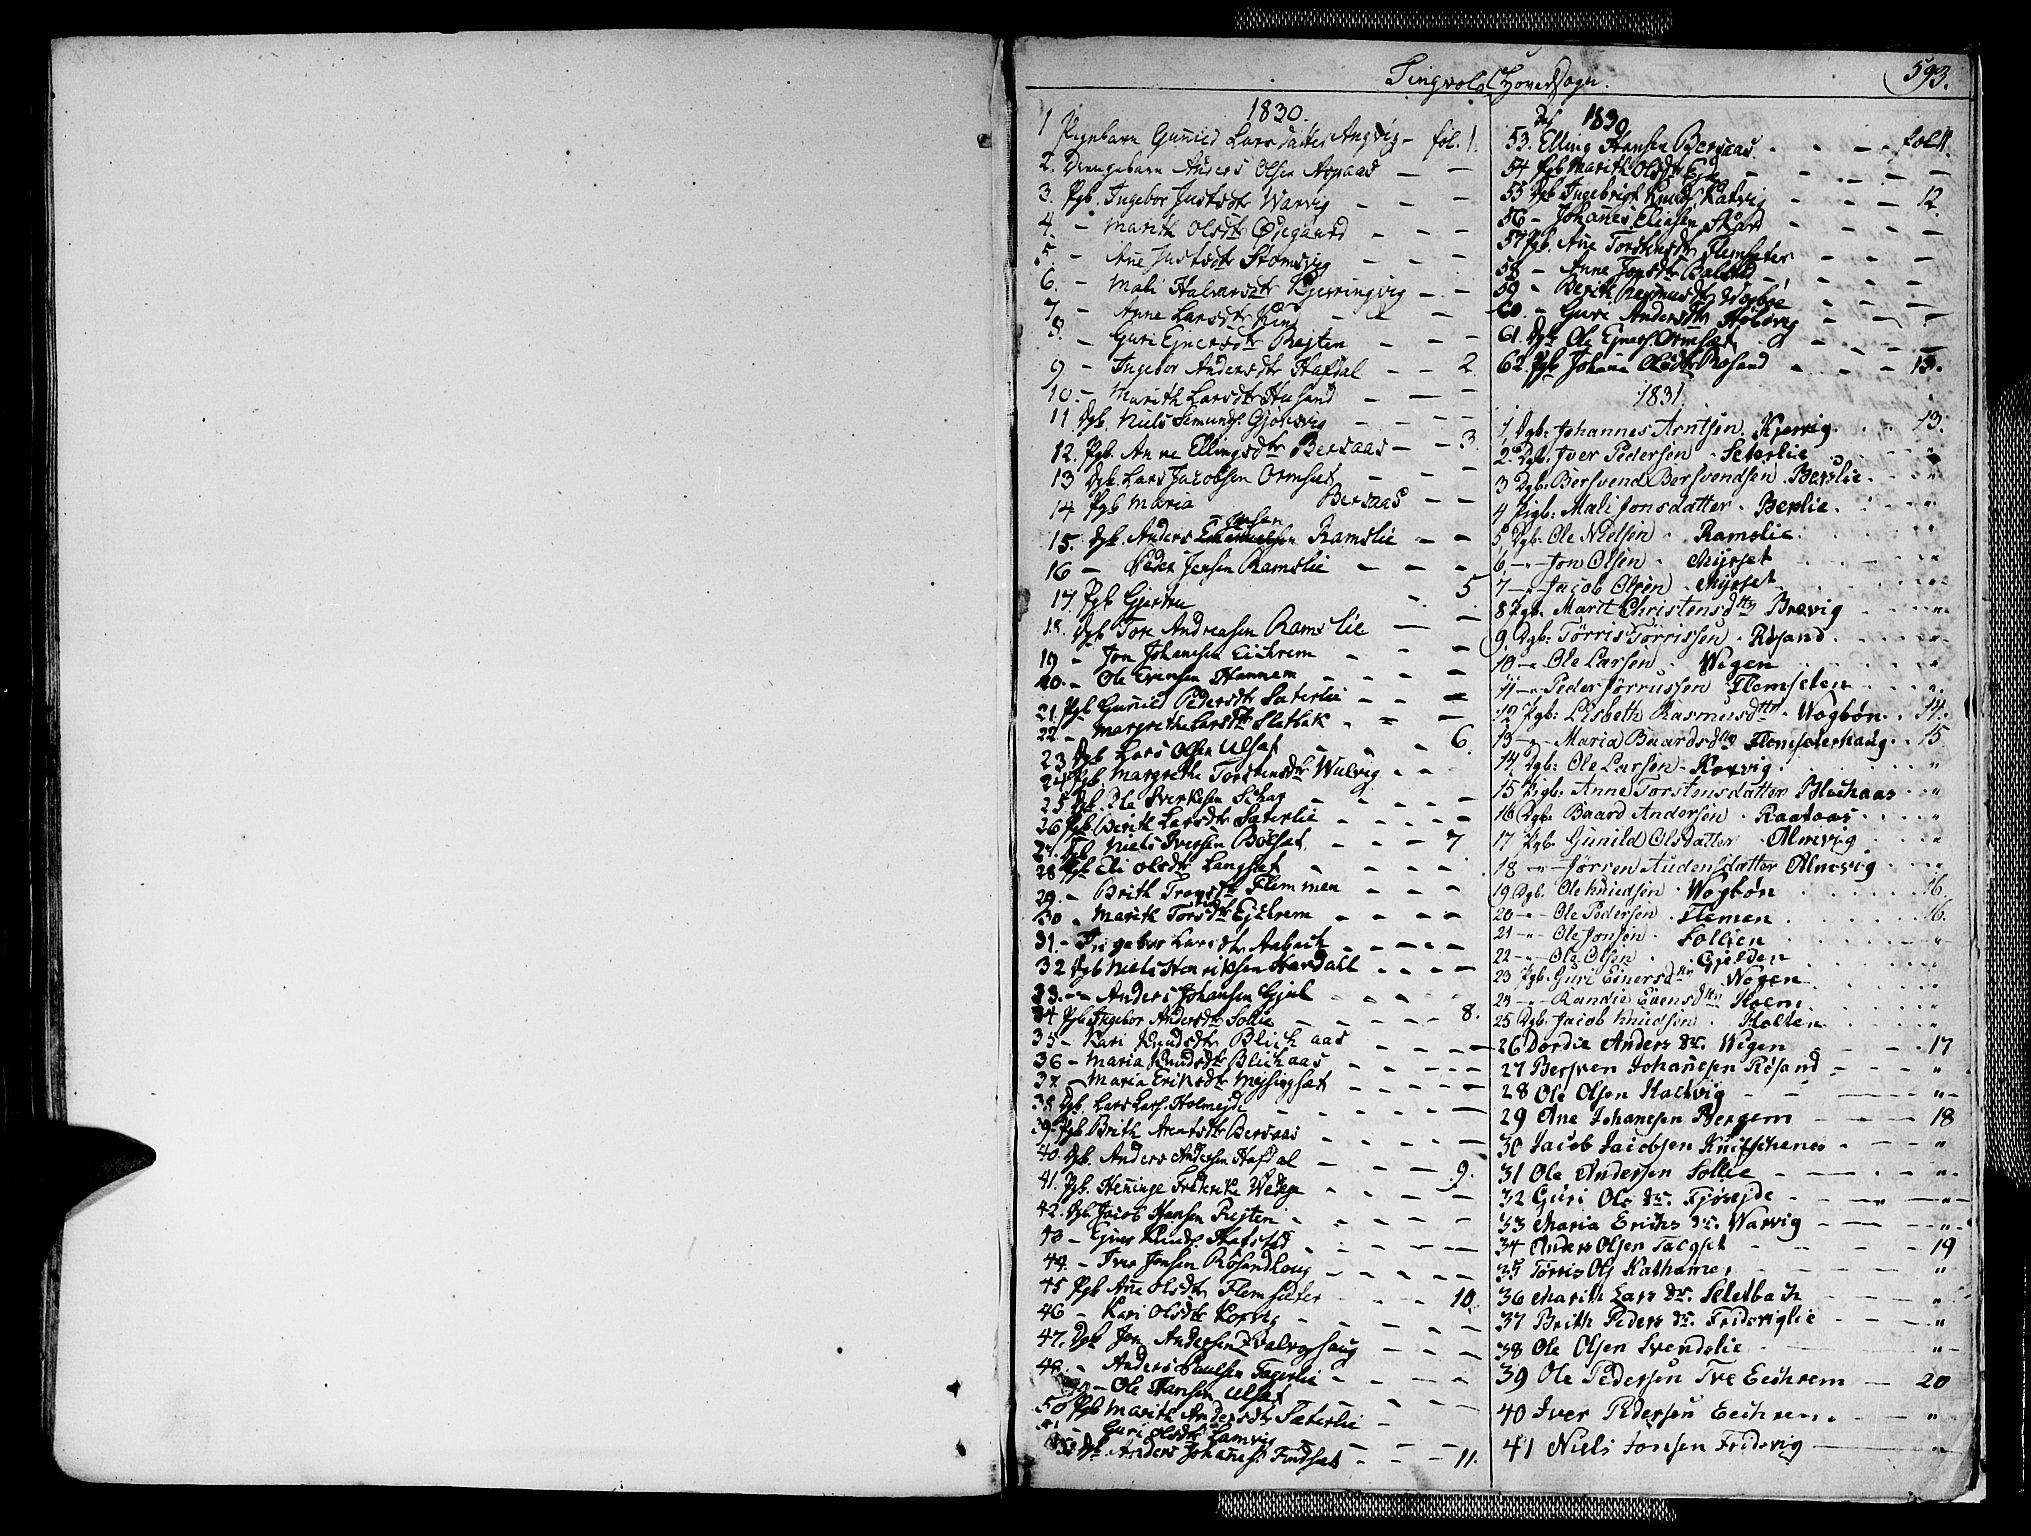 Tingvold Hovedsogn.
593.
1830.
1 Pigebarn Gunild Larsdatter Angvig - fol. 1.
2. Drengebarn Anders Olsen Aspaas - -
3. Pgb. Ingebor Justsdtr Warvig - - -
4. - Marith Olsdtr Ødegaard - - -
5. - Ane Justsdtr Stomsvig - - -
6. - Mali Halversdtr Kjerringvig - -
7. - Anne Larsdtr - - -
8. - Guri Ejnersdtr Rejten - - -
9 - Ingebor Andersdtr Hafdal - - 2
10. - Marith Larsdtr Husand - - -
11 Dgb. Niels Simunds. Gjørsvig - - -
12. Pgb. Anne Ellingsdtr Bersaas - - 3
13 Dgb. Lars Jacobsen Ormset - - -
14 Pgb Maria Bersaas - -
15. Dgb. Anders Jensen Ramslie - -
16 - Peder Jensen Ramslie - - - -
17. Pgb Gjertru - 5
18. Dgb Tore Andreasen Ramslie - -
19 - Jon Johansen Eichrem - - -
20. - Ole Evensen Hannem - - - -
21. Pgb Gunild Pedersdtr Saterlie - - -
22. - Margrethe Larsdtr Sletbak - - -
23 Dgb Lars Olsen Ulset - - - 6.
24 Pgb Margrethe Torstensdtr Wulvig - -
25 Dgb. Ole Sverkesen Schar - - - -
26 Pgb Berith Larsdtr Saterlie - - - -
27. Dgb Niels Iversen Bølset - - - 7
28 Pgb Eli Olsdtr Langset - - - -
29. - Brith Trondsdtr Flemmen - - - -
30 - Marith Torsdtr Ejchrem - - - -
31. - Ingebor Larsdtr Aabach - - - -
32 Dgb Niels Henriksen Hardall - - - -
33. - Anders Johansen Gjul - - - -
34 Pgb Ingebor Andersdtr Sollie - - - - 8.
35 - Kari Knudsdtr Blichaas - - - -
36 - Maria Knudsdtr Blichaas - - - -
37. - Maria Eriksdtr Mejsingset - - - -
38 Dgb. Lars Lars. Holmejde - - - -
39. Pgb Brith Arentsdtr Bersaas - - - -
40. Dgb. Anders Andersen Hafdal - - - 9.
41. Pgb. Henninge Frederike - - -
42. Dgb Jacob Hansen Rejten - - - -
43 - Ejner Knuds. Hafstad - - - -
44. - Iver Jensen Røsandhoug - - - -
45 Pgb Ane Olsdtr Flemsæter - - - 10
46 - Kari Olsdtr Korsvig - - - -
47. Dgb Jon Andersen - - - -
48. - Anders Paulsen Fagerlie - - - -
- Ole Hansen Ulset - - - -
50 Pgb Marith Andersdtr Sæterlie -
- Guri Olsdtr Lamvig - - - -
52 Dgb. Anders Johanes. Findset - - - 11.
1830
53. Elling Hansen Bersaas - - - fol 11.
54 Pgb Marith Olsdtr Eje - - - -
55 Dgb Ingebrigt Knuds. Kalvig - - - 12
56 - Johanes Eliasen Skar - - -
57 Pgb. Ane Torstensdtr Flemseter - - -
58 - Anne Jonsdtr - - - -
59 - Berith Rasmusdtr Wogbøe
60. - Guri Andersdtr - - -
61. Dgb Ole Ejners. Ormset - - -
62. Pgb Johana Olsdtr Røsand - - - 13.
1831
1, Dgb: Johannes Arntsen. Kjervig. . . 13.
2. Dgb: Iver Pedersen - Seterlie . . . "
3 Dgb: Bersvend Bersvendsen. Berslie . . . "
4 Pigb: Mali Jonsdatter . Berslie. . . "
5 Dgb: Ole Nielsen . Ramslie. . . "
6, -"- Jon Olsen . Myrset . . . "
7 -"- Jacob Olsen . Myrset . . . "
8 Pgb: Marit Christensdtr Brævig . . . "
9, Dgb: Tørris Torrissen . Røsand . . . "
10 -"- Ole Larsen . Wegen . . . "
11 -"- Peder Jørrussen Flemseten . . . "
12 Pgb: Lisbeth Rasmusdtr. Wogbøn. . . 14.
13 -"- Maria Baardsdtr Flemseterhaug . . 15
14, Dgb: Ole Larsen . Korsvig. . . "
15 Pigb: Anne Torstensdatter Blichaas . . "
16 Dgb: Baard Andersen . Raafoas . . . "
17 Pgb. Gunild Olsdatter . Almvig . . . "
18 -"- Jørren Audensdatter Almvig . . . "
19 Dgb. Ole Knudsen . Wogbøn . . . 16.
20 -"- Ole Pedersen . Flemen . . . 16.
21 -"- Ole Jonsen . Sollien . . . "
22 -"- Ole Olsen . Gjelden . . . "
23 Pgb. Guri Einersdtr Wegen . . . "
24 -"- Randie Evensdtr Holem . . . "
25 Dgb. Jacob Knudsen . Holten . . . "
26 Dordie Anders dr. Wegen - - - 17
27 Bersven Johannesen Røsand - - - "
28 Ole Olsen Kalvig - - - "
29 Ane Johansen Bergem - - - 18
30 Jacob Jacobsen - - "
31 Ole Andersen Sollie - - - "
32 Guri Ols dr. Fjøsejde - - - "
33 Maria Eriks dr. Warvig - - - "
34 Anders Olsen - - - 19
35 Tørris Ols - - - "
36 Marith Lars dr. Sletbach - - - "
37 Brith Peders dr. Fridsviglie - - - "
38 Ole Olsen Svendslie - - - "
39 Ole Pedersen Eichrem - 20
40 Iver Pedersen Eichrem. - - "
41 Niels Jonsen Fridsvig - - "